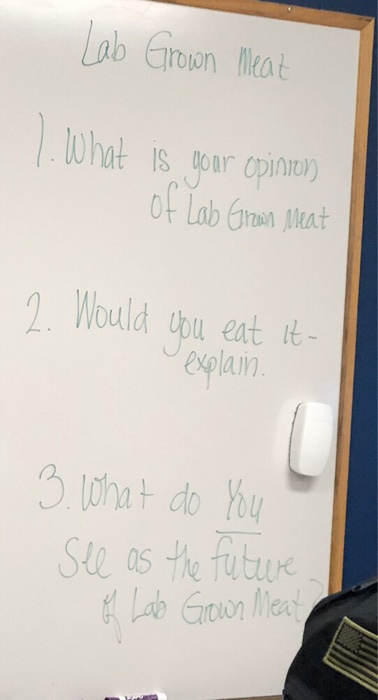 Lab Grown Meat
1. What is your opinion
of Lab Grown Meat
2. Would you eat it -
explain.
3. What do You
See as the future
of Lab Grown Meat?